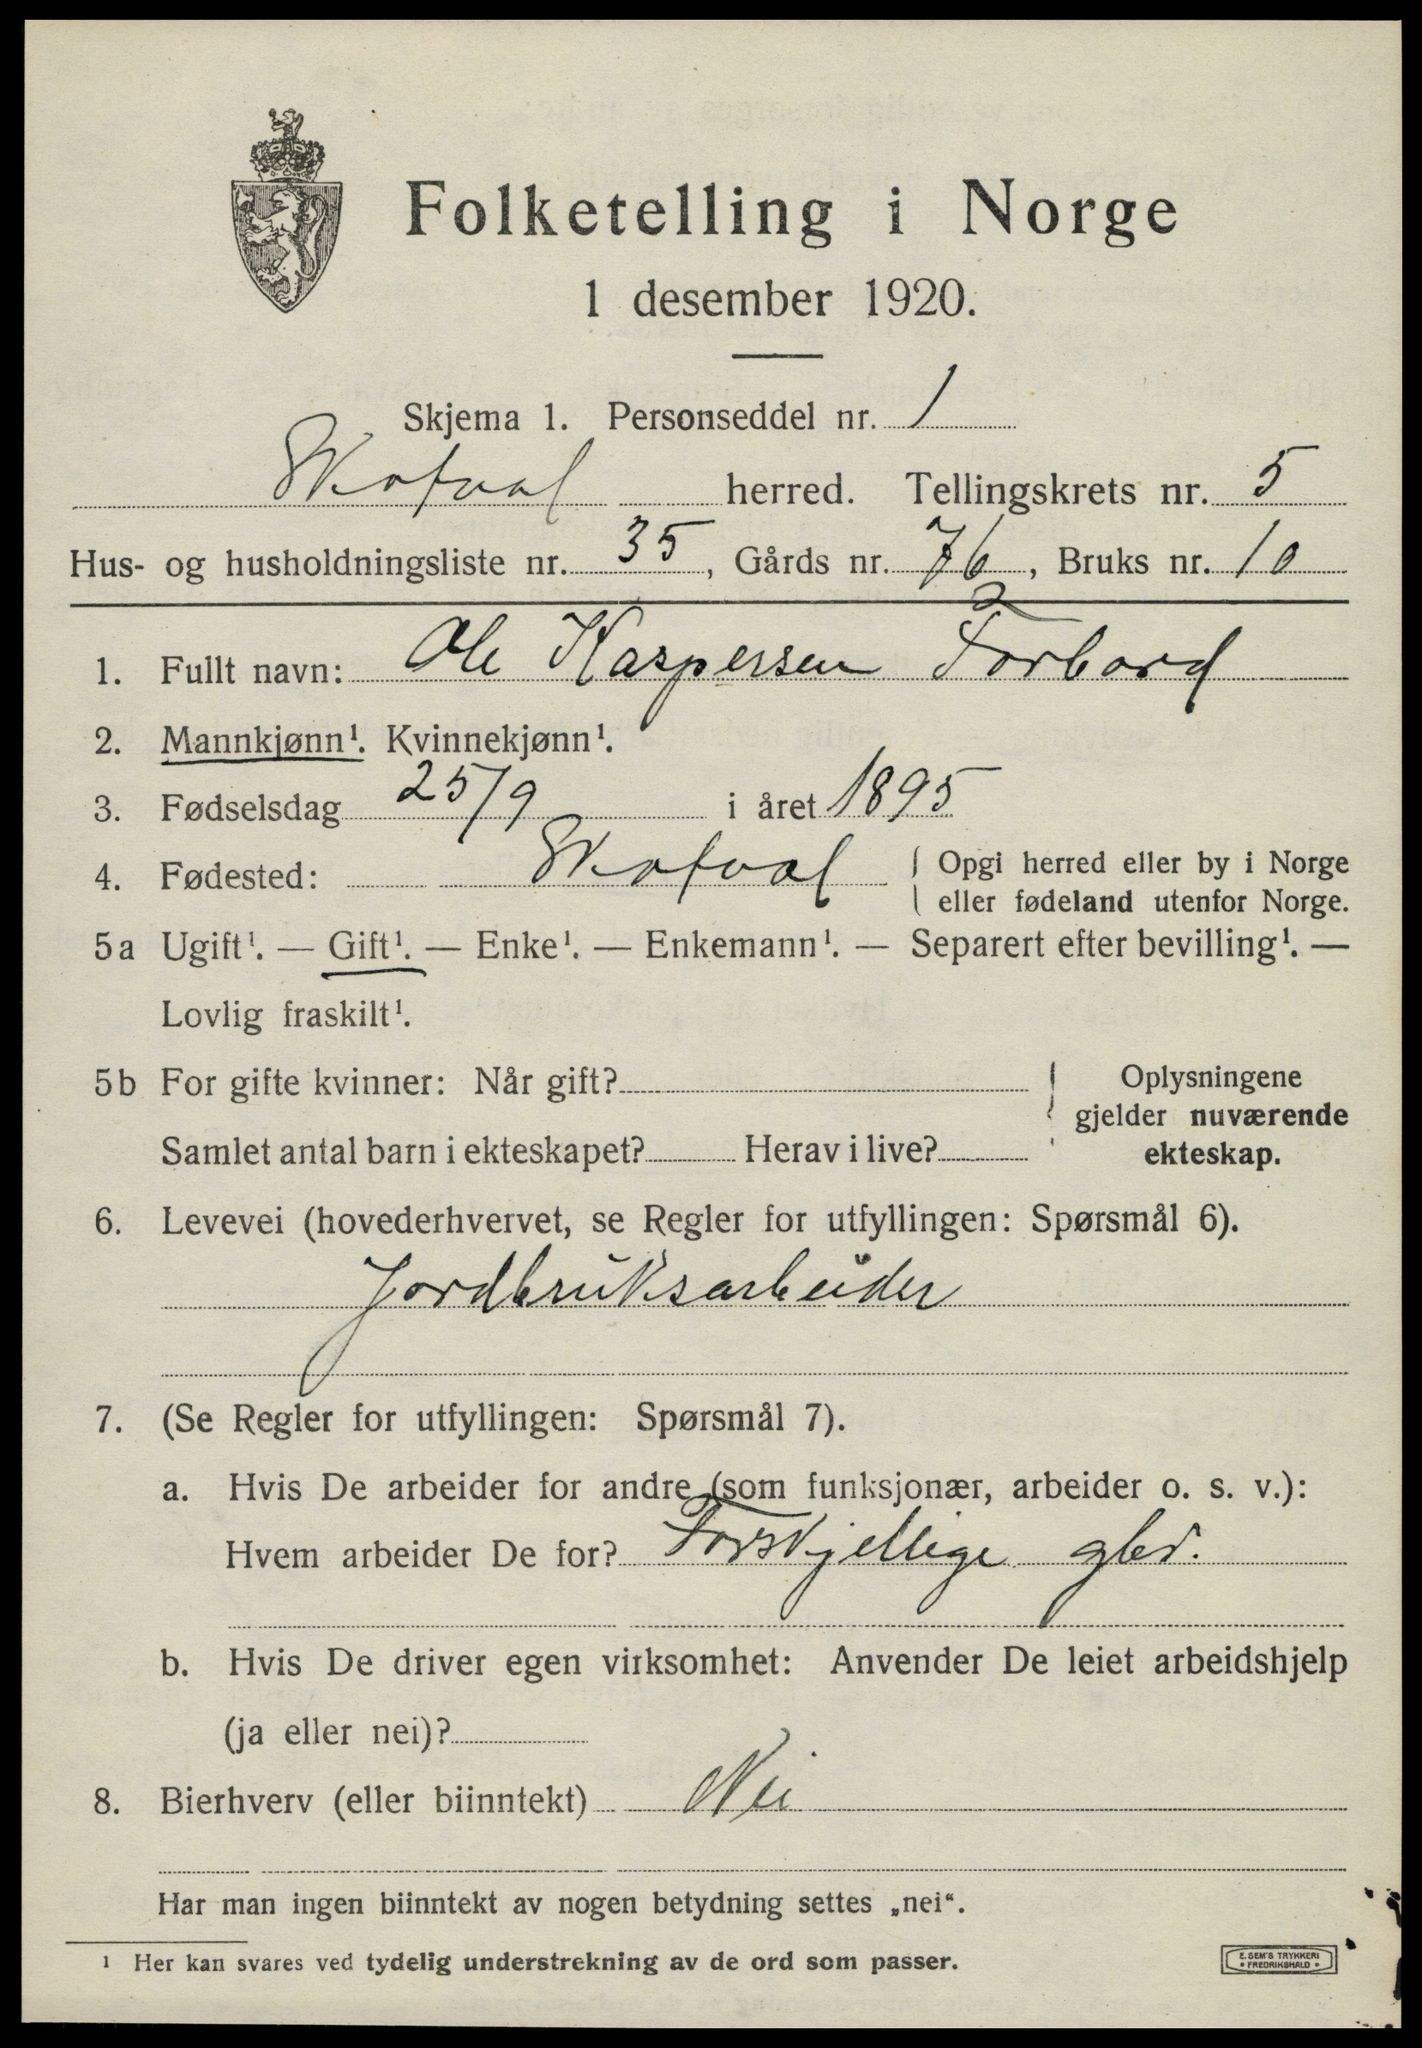 Folketelling i Norge
1 desember 1920.
Skjema 1. Personseddel nr. 1
Skatval herred. Tellingskrets nr. 5
Hus- og husholdningsliste nr. 35, Gårds nr. 76, Bruks nr. 10
1. Fullt navn: Ole Kaspersen Forbord
2. Mannkjønn¹. Kvinnekjønn¹.
3. Fødselsdag 25/9 i året 1895
4. Fødested: Skatval { Opgi herred eller by i Norge
eller fødeland utenfor Norge.
5a Ugift¹. — Gift¹. — Enke¹. — Enkemann¹. — Separert efter bevilling¹. —
Lovlig fraskilt¹.
5b For gifte kvinner: Når gift? } Oplysningene
gjelder nuværende
Samlet antal barn i ekteskapet? Herav i live? ekteskap.
6. Levevei (hovederhvervet, se Regler for utfyllingen: Spørsmål 6).
Jordbruksarbeider
7. (Se Regler for utfyllingen: Spørsmål 7).
a. Hvis De arbeider for andre (som funksjonær, arbeider o. s. v.):
Hvem arbeider De for? Forskjellige gbr.
b. Hvis De driver egen virksomhet: Anvender De leiet arbeidshjelp
(ja eller nei)?
8. Bierhverv (eller biinntekt) Nei
Har man ingen biinntekt av nogen betydning settes „nei“.
¹ Her kan svares ved tydelig understrekning av de ord som passer.
E. SEM'S TRYKKERI
• FREDRIKSHALD •